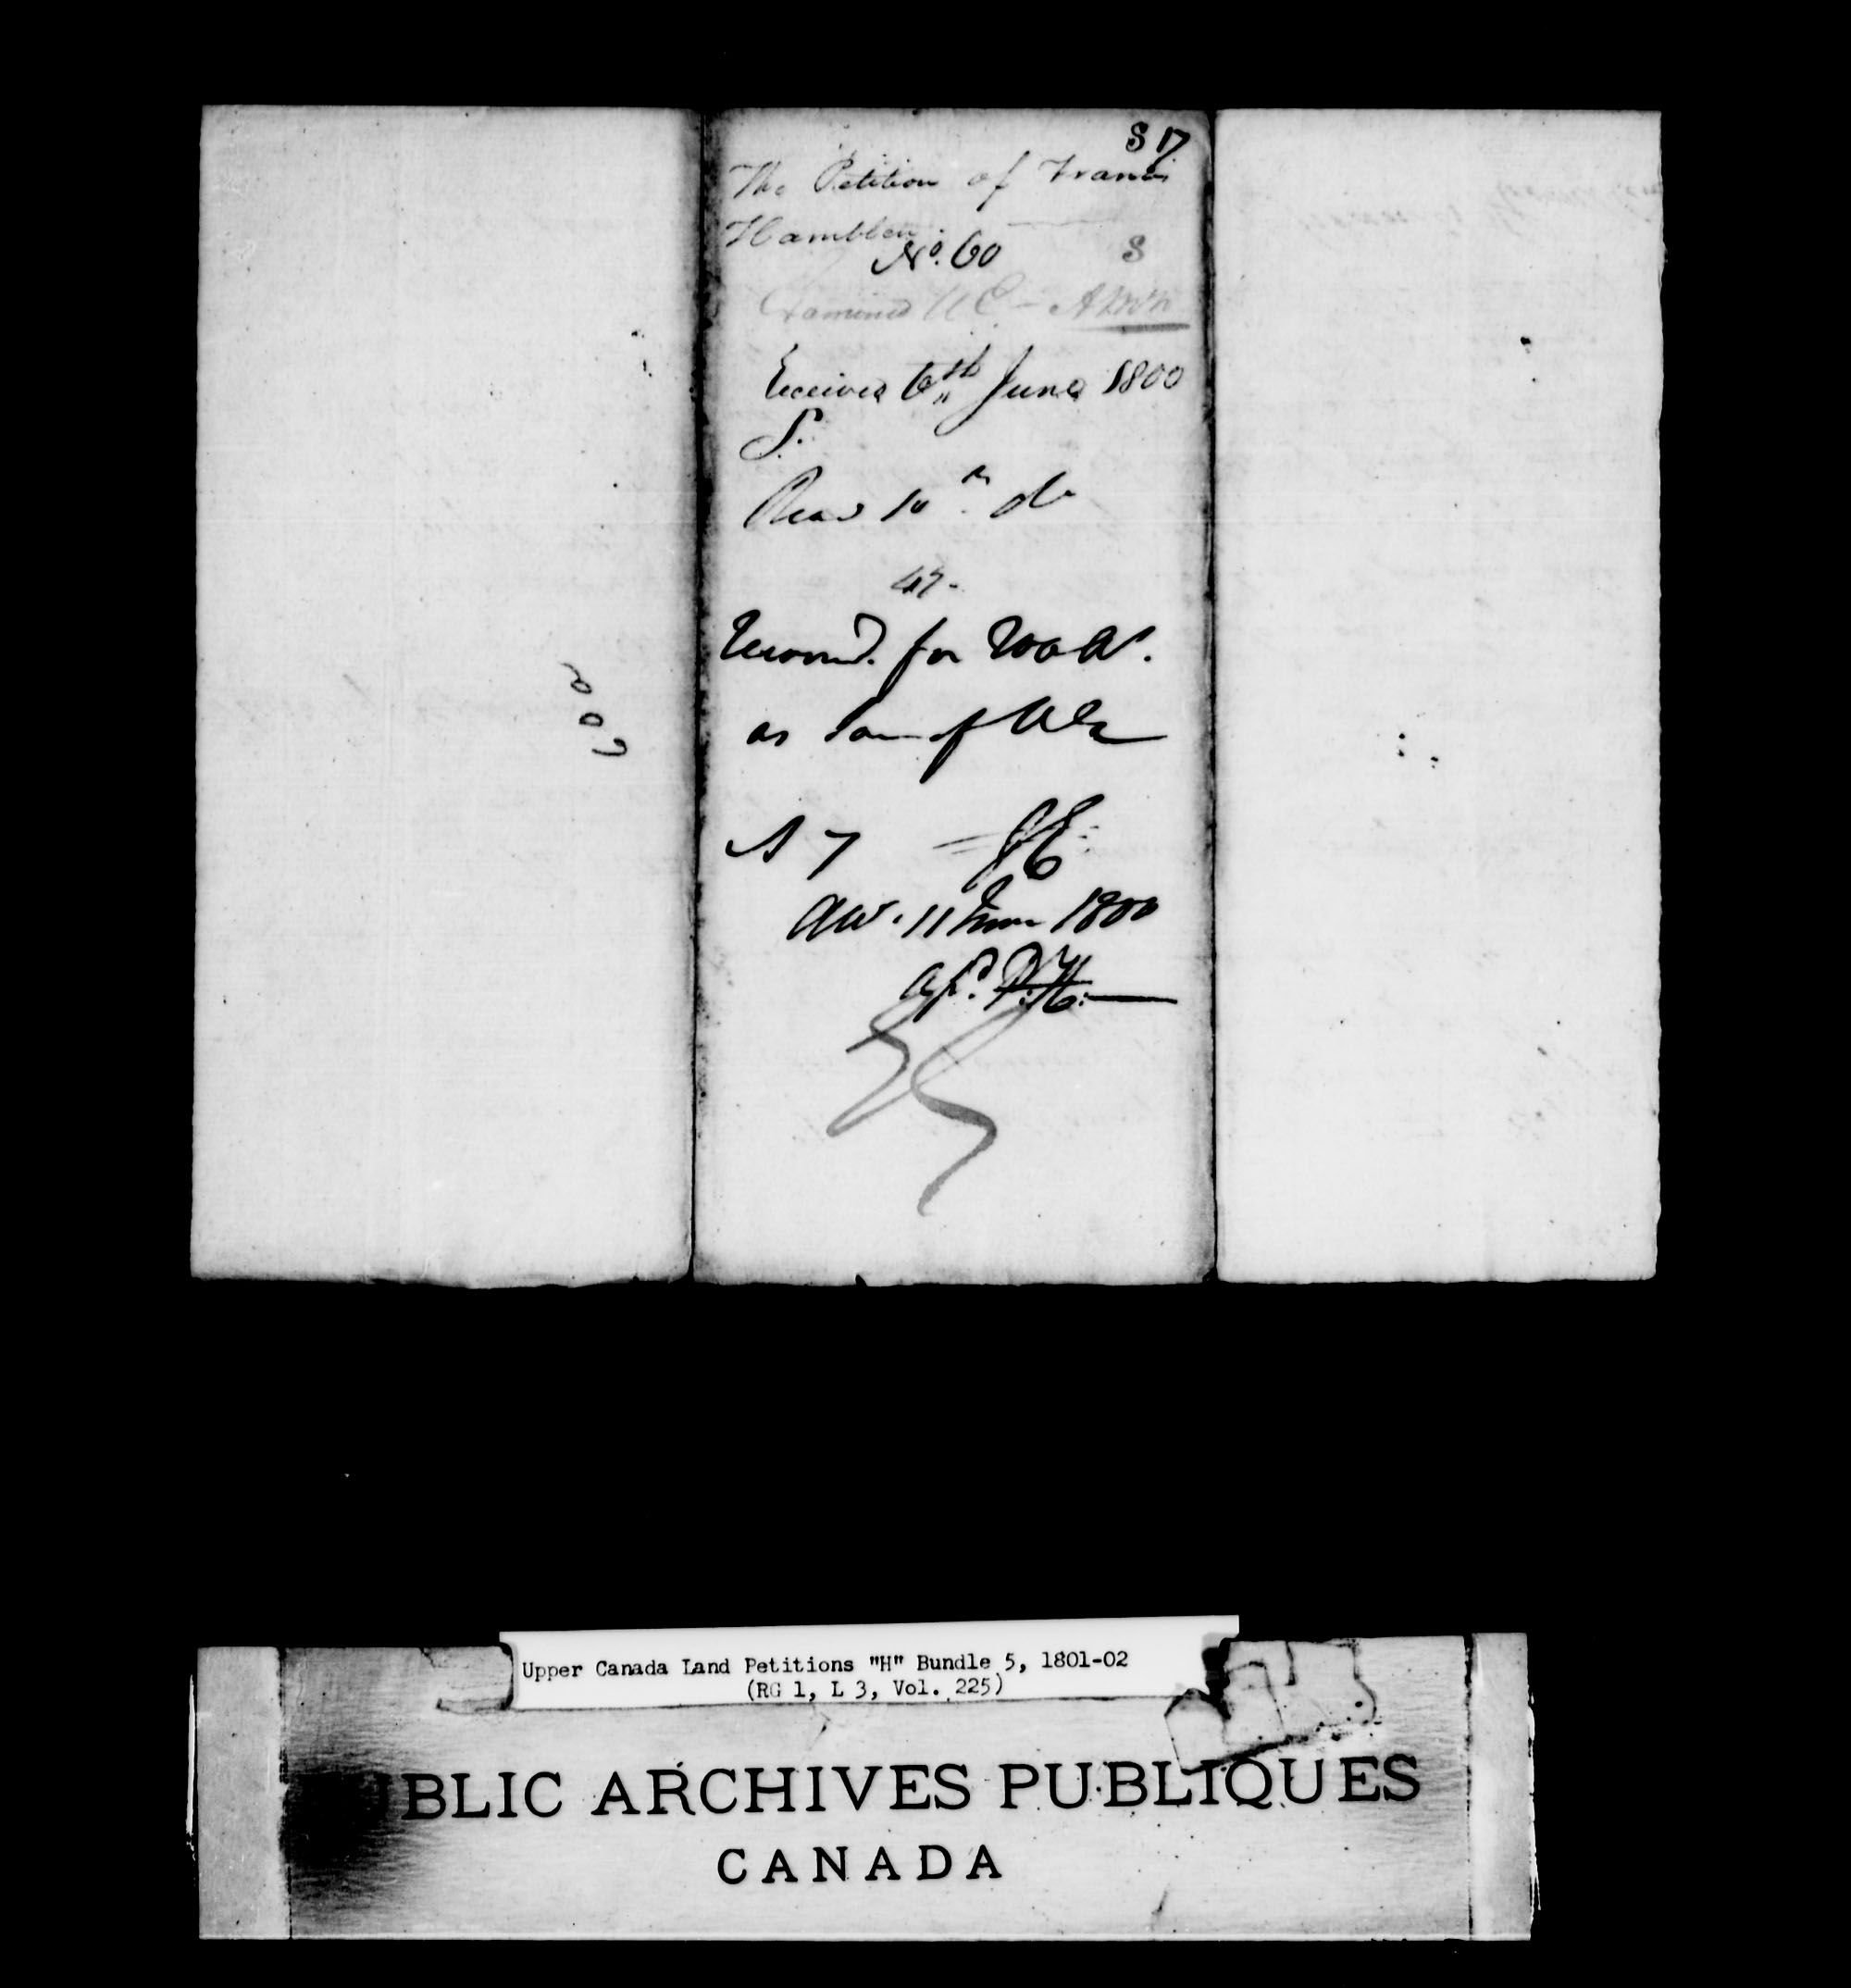 S 17
The Petition of Francis
Hamblen
No. 60
S
Examined U C -
Received 6th June 1800
S.
Read 10th do
47.
Recomd. for 200 As.
as Son of UE
S 7 JE
PR. 11 June 1800
apd. P.H.
60 a
Upper Canada Land Petitions "H" Bundle 5, 1801-02
(RG 1, L 3, Vol. 225)
BLIC ARCHIVES PUBLIQUES
CANADA